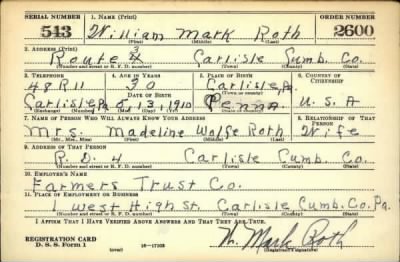 SERIAL NUMBER 1. NAME (Print) ORDER NUMBER
543 William Mark Roth 2600
(First) (Middle) (Last)
2. ADDRESS (Print)
Route 3 Carlisle Cumb. Co.
(Number and street or R. F. D. number) (Town) (County) (State)
3. TELEPHONE 4. AGE IN YEARS 5. PLACE OF BIRTH 6. COUNTRY OF CITIZENSHIP
48R11 30 Carlisle, Pa.
DATE OF BIRTH
Carlisle Pa 8 13, 1910 Penna U.S.A
7. NAME OF PERSON WHO WILL ALWAYS KNOW YOUR ADDRESS 8. RELATIONSHIP OF THAT PERSON
Mrs. Madeline Wolfe Roth Wife
(Mr., Mrs., Miss) (First) (Middle) (Last)
9. ADDRESS OF THAT PERSON
R.D. 4 Carlisle Cumb. Co.
(Number and street or R. F. D. number) (Town) (County) (State)
10. EMPLOYER'S NAME
Farmers Trust Co.
11. PLACE OF EMPLOYMENT OR BUSINESS
1 West High St. Carlisle Cumb. Co. Pa.
(Number and street or R. F. D. number) (Town) (County) (State)
I AFFIRM THAT I HAVE VERIFIED ABOVE ANSWERS AND THAT THEY ARE TRUE.
REGISTRATION CARD
D. S. S. Form 1 (over) 16-17105 W. Mark Roth